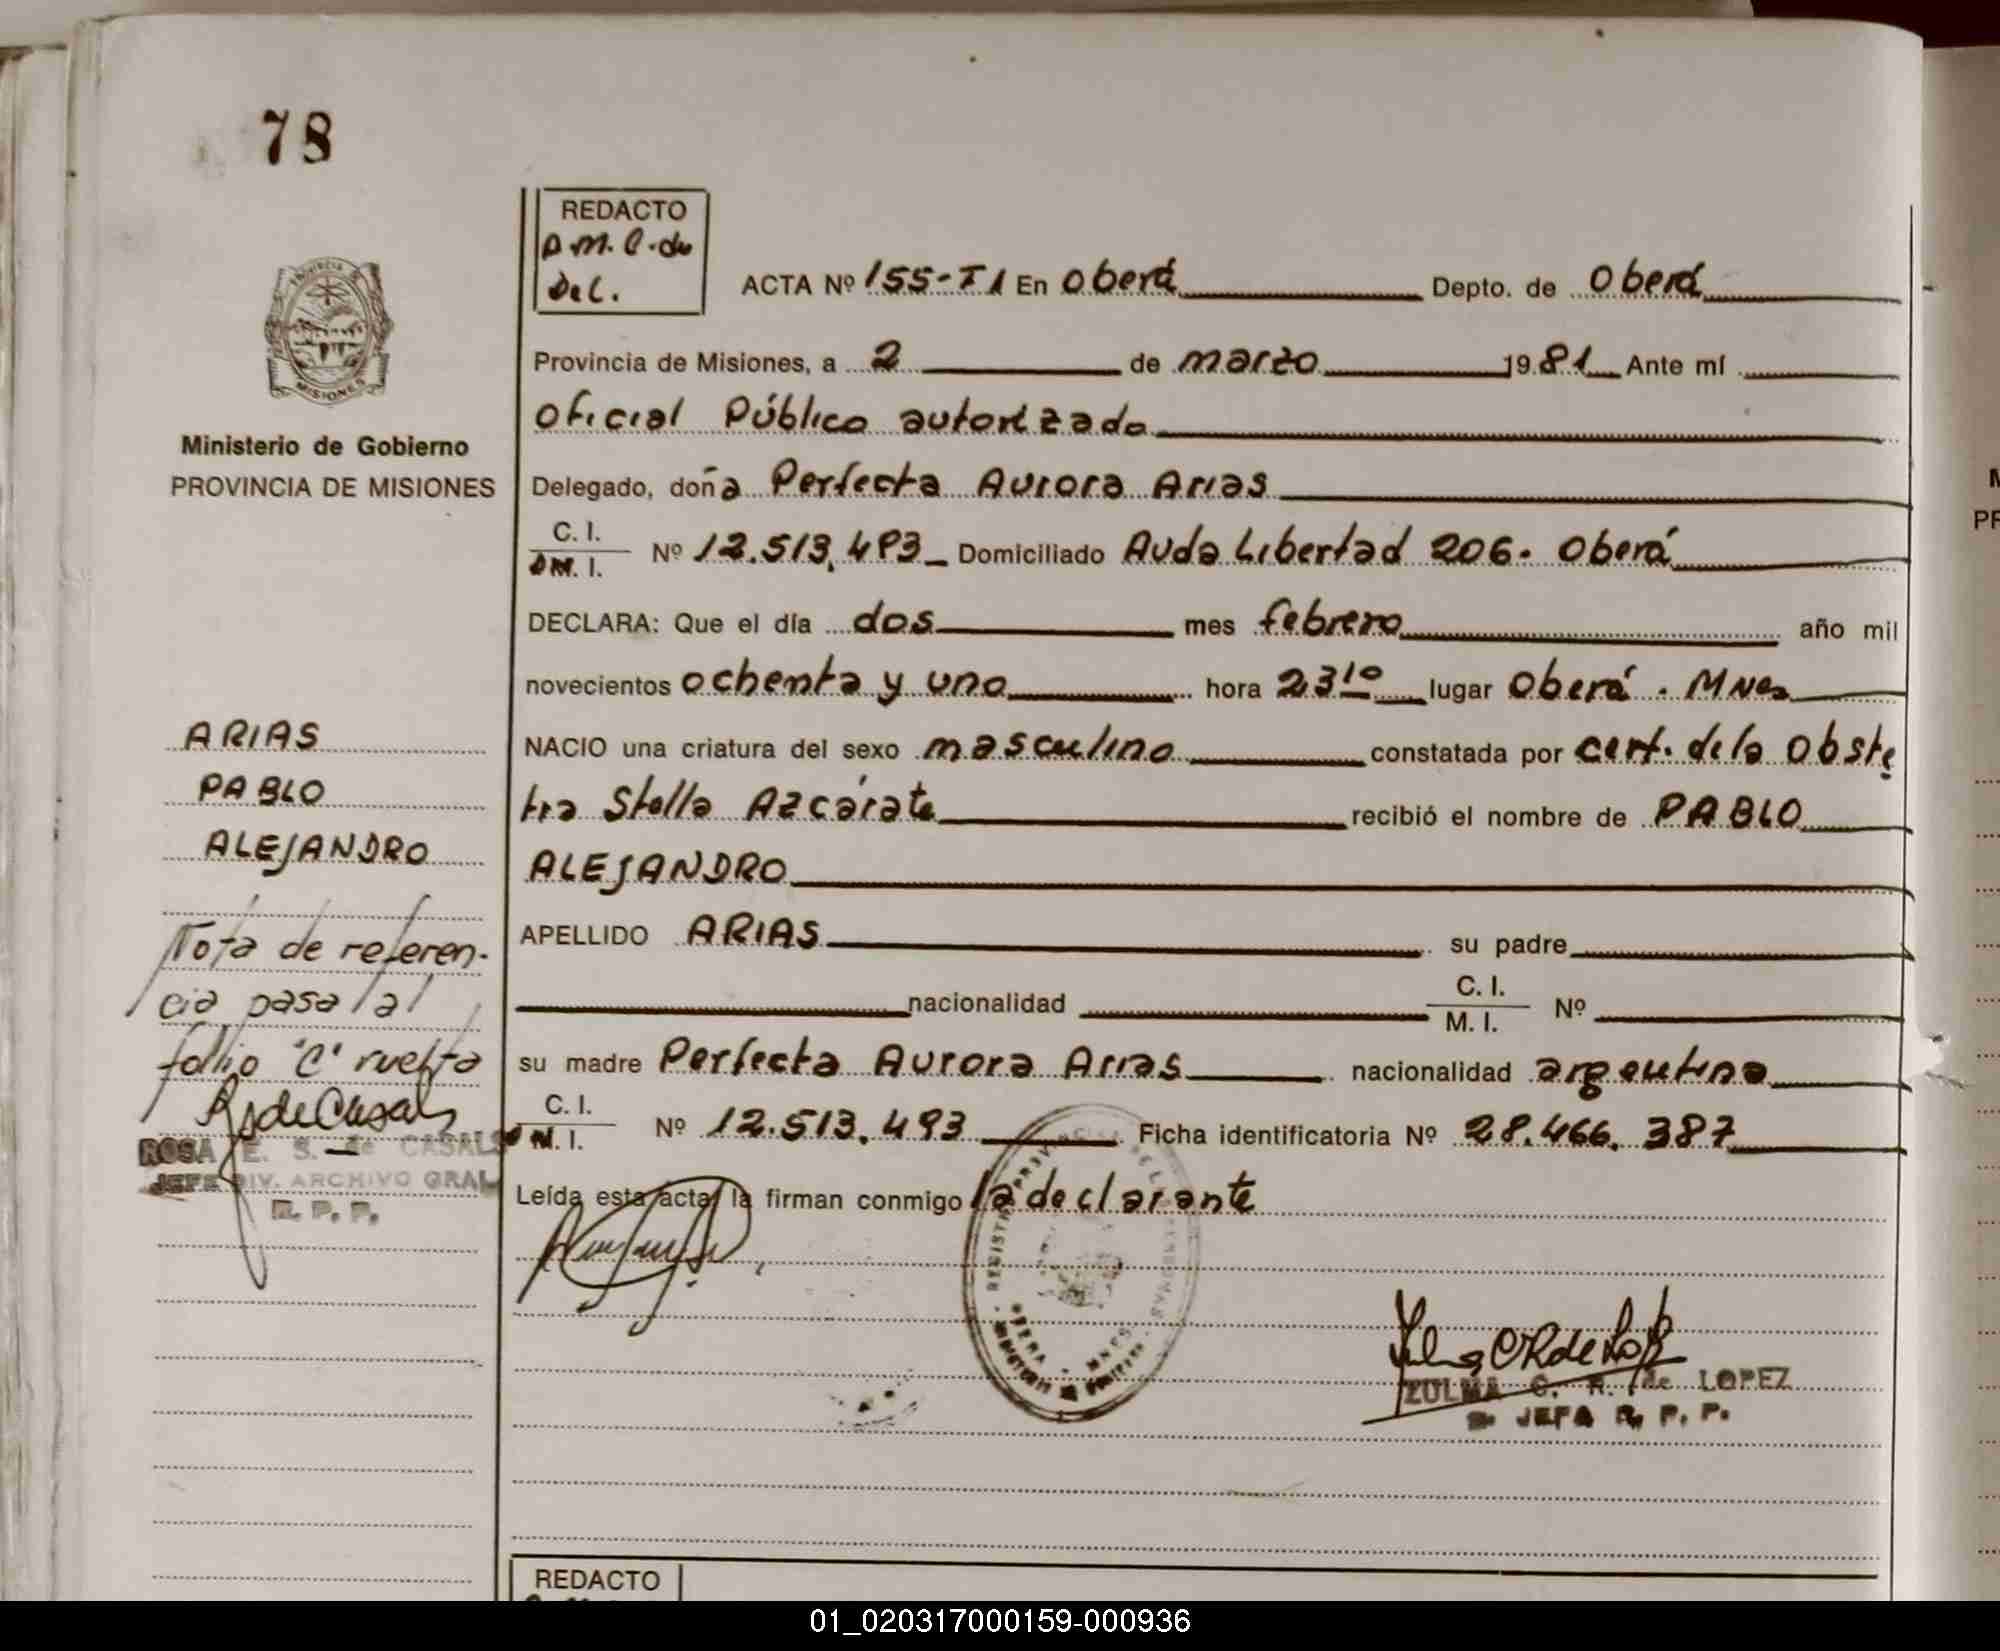 78
REDACTO
ACTA Nº 155-T1 En Oberá Depto. de Oberá
Provincia de Misiones, a 2 de marzo 1981 Ante mí
Oficial Público autorizado
Ministerio de Gobierno
PROVINCIA DE MISIONES
Delegado, doña Perfecta Aurora Arias
C. I.
M. I. Nº 12.513.493 Domiciliado Avda Libertad 206. Oberá
DECLARA: Que el día dos mes febrero año mil
novecientos ochenta y uno hora 23 10 lugar Oberá. Mnes
NACIO una criatura del sexo masculino constatada por cert. de la Obste
tra Stella Azcárate recibió el nombre de PABLO
ALEJANDRO
APELLIDO ARIAS su padre
nacionalidad C. I.
M. I. Nº
su madre Perfecta Aurora Arias nacionalidad argentina
C. I.
M. I. Nº 12.513.493 Ficha identificatoria Nº 28.466.387
Leída esta acta, la firman conmigo la declarante
ARIAS
PABLO
ALEJANDRO
Nota de referen-
cia pasa al
folio "C" vuelta
ROSA E. S. de CASALS
JEFE DIV. ARCHIVO GRAL
R. P. P.
MISIONES
OBERA - MNES
ZULMA C. R. de LOPEZ
JEFA R. P. P.
REDACTO
01_020317000159-000936